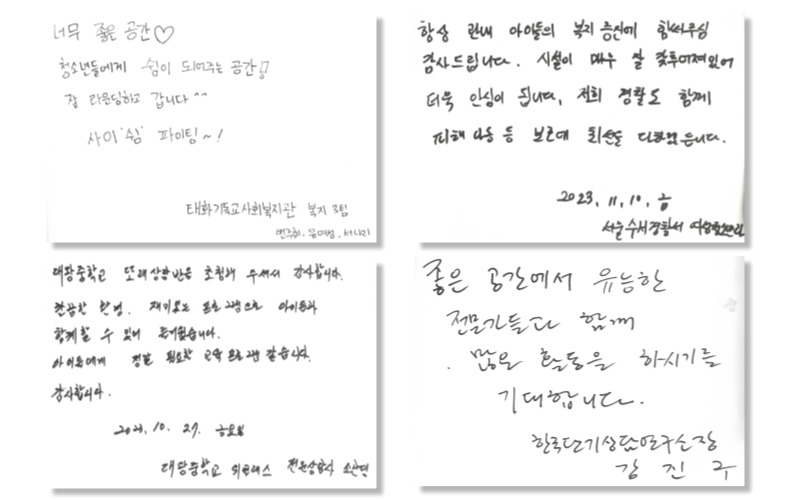 너무 좋은 공간♡
청소년들에게 쉼이 되어주는 공간!
잘 라운딩하고 갑니다^^
사이'쉼' 파이팅~!
태화기독교사회복지관 복지3팀
변주희, 윤여성, 서나리
항상 관내 아이들의 복지 증진에 힘써주심
감사드립니다. 시설이 매우 잘 갖추어져있어
더욱 안심이 됩니다, 저희 경찰도 함께
피해아동 등 보호에 최선을 다하겠습니다.
2023. 11. 10. 금
서울수서경찰서
대왕중학교 또래상담반을 초청해 주셔서 감사합니다.
깔끔한 환경, 재미있는 프로그램으로 아이들과
함께할 수 있어 즐거웠습니다.
아이들에게 정말 필요한 교육 프로그램 같습니다.
감사합니다.
2023. 10. 27. 금요일
대왕중학교 위클래스 전문상담사
좋은 공간에서 유능한
전문가들과 함께
많은 활동을 하시기를
기대합니다.
한국단기상담연구소장
김진구